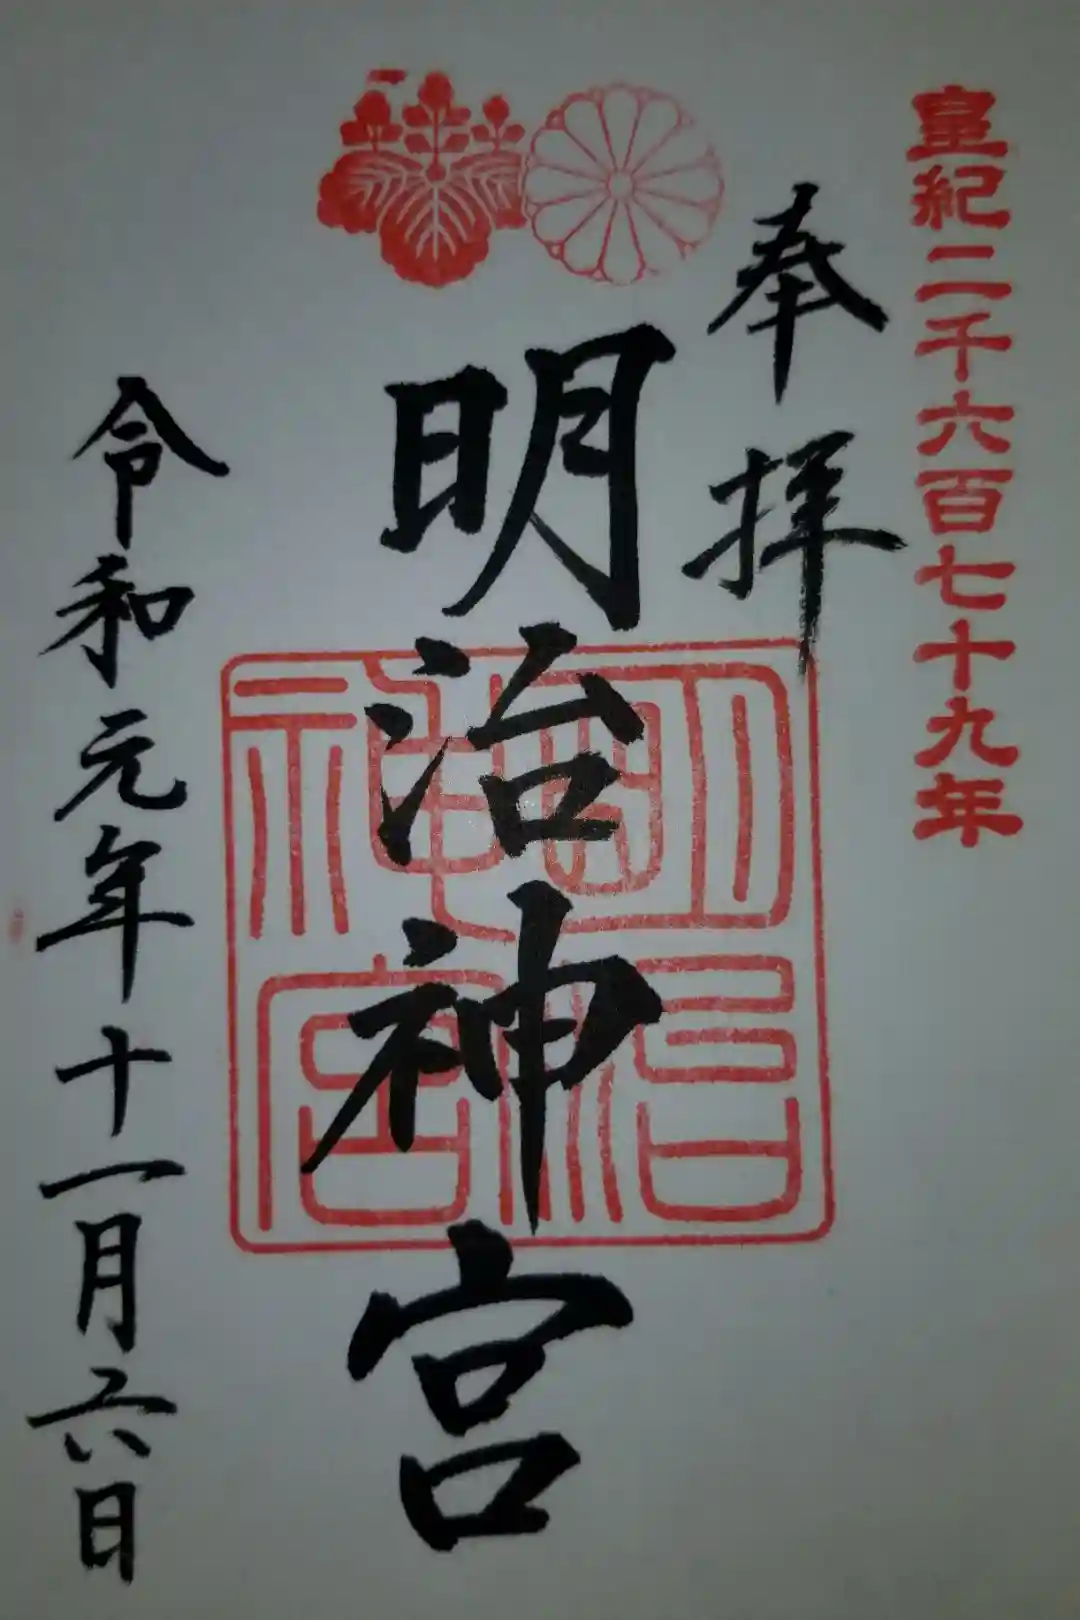 皇紀二千六百七十九年
奉拝
明治神宮
明治神宮
令和元年十一月六日